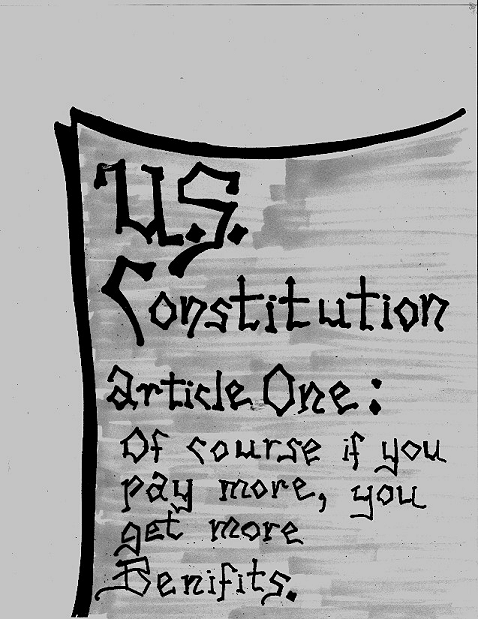 U.S.
Constitution
article One:
Of course if you
pay more, you
get more
Benifits.